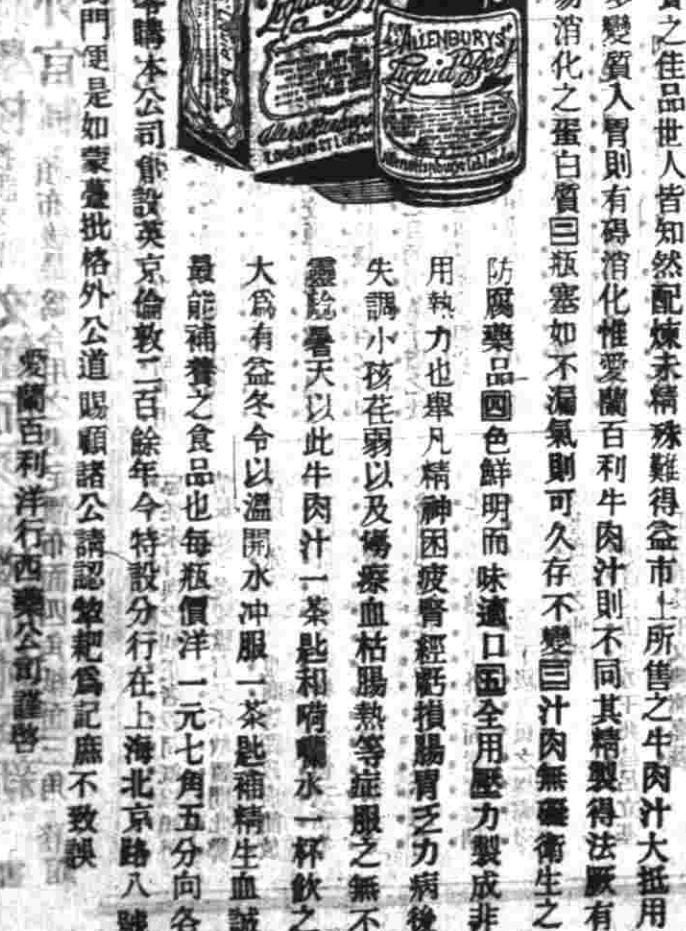 之佳品世人皆知然配煉未精殊難得益市上所售之牛肉汁大抵用
變質入胃則有碍消化惟愛蘭百利牛肉汁則不同其精製得法厥有
易消化之蛋白質二瓶塞如不漏氣則可久存不變三汁肉無礙衛生之
ALLENBURYS
Liquid Beef
防腐藥品四色鮮明而味適口五全用壓力製成非
用熱力也舉凡精神困疲腎經虧損腸胃乏力病後
失調小孩荏弱以及癆瘵血枯腸熱等症服之無不
靈驗暑天以此牛肉汁一茶匙和荷囒水一杯飲之
大爲有益冬令以溫開水冲服一茶匙補精生血誠
最能補養之食品也每瓶價洋一元七角五分向各
購本公司創設英京倫敦二百餘年今特設分行在上海北京路八號
門便是如蒙躉批格外公道賜顧諸公請認犂耙爲記庶不致誤
愛蘭百利洋行西藥公司謹啓